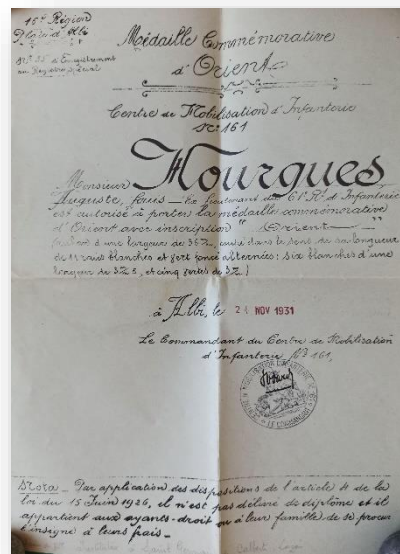 16e Région
Place d'Albi
au Registre
Médaille Commémorative
d'Orient
Centre de Mobilisation d'Infanterie
No 161
Monsieur Hourgues
Auguste, sous-lieutenant du
est autorisé à porter la médaille commémorative
d'Orient avec inscription "Orient"
d'une largeur de dans le sens de sa longueur
de raies blanches et vert foncé alternées: six blanches d'une
largeur de et cinq vertes de
à Albi, le 20 NOV 1931
Le Commandant du Centre de Mobilisation
d'Infanterie No 161,
LE COMMANDANT
Nota - Par application des dispositions de l'article 4 de la
loi du 15 Juin 1926, il n'est pas délivré de diplôme et il
appartient aux ayants-droit ou à leur famille de se procurer
l'insigne à leurs frais -